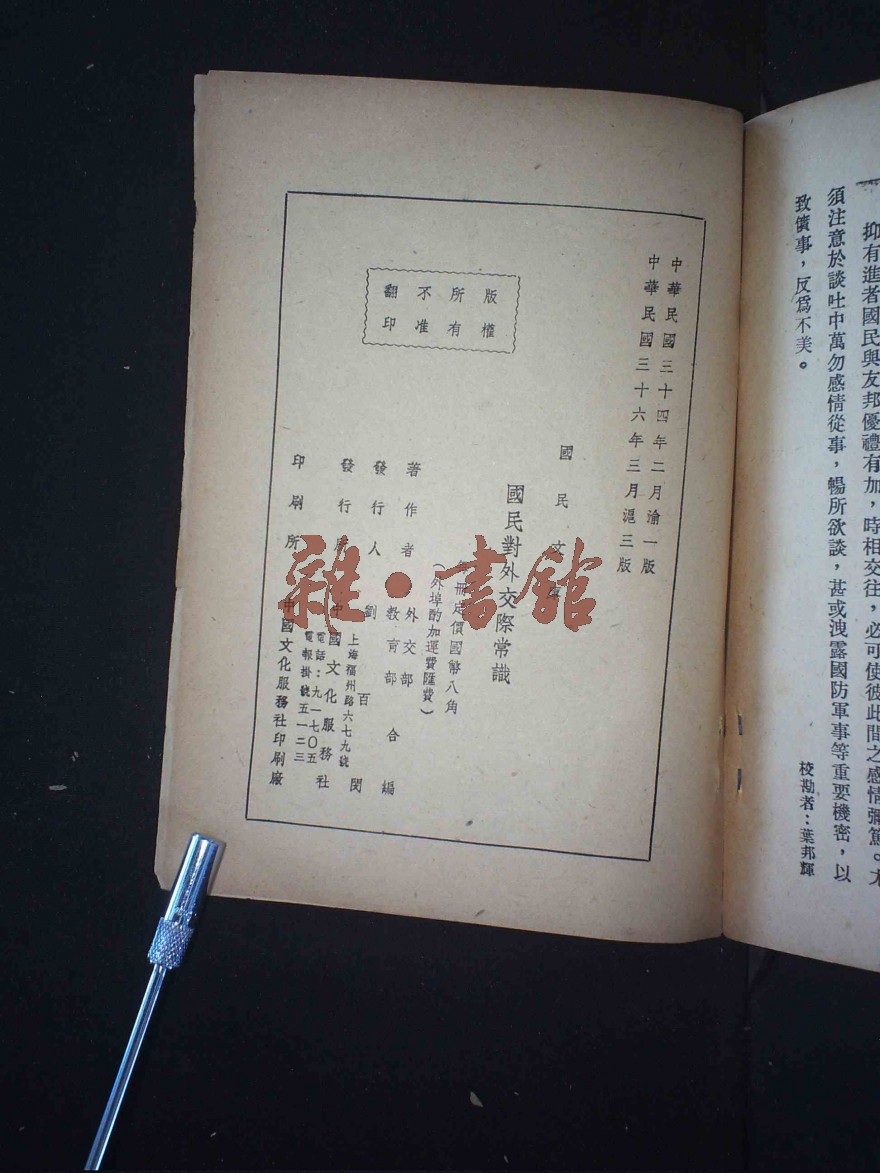 抑有進者國民與友邦優禮有加，時相交往，必可使彼此間之感情彌篤。尤
須注意於談吐中萬勿感情從事，暢所欲談，甚或洩露國防軍事等重要機密，以
致僨事，反爲不美。
校勘者：葉邦輝
中華民國三十四年二月渝一版
中華民國三十六年三月滬三版
國民文
國民對外交際常識
冊定價國幣八角
（外埠酌加運費匯費）
著作者 外交部 教育部 合編
發行人 劉百閔
發行所 中國文化服務社
上海福州路六七九號
電話：九一七〇五
電報掛號五一二三
印刷所 中國文化服務社印刷廠
版權
所有
不准
翻印
雜·書館